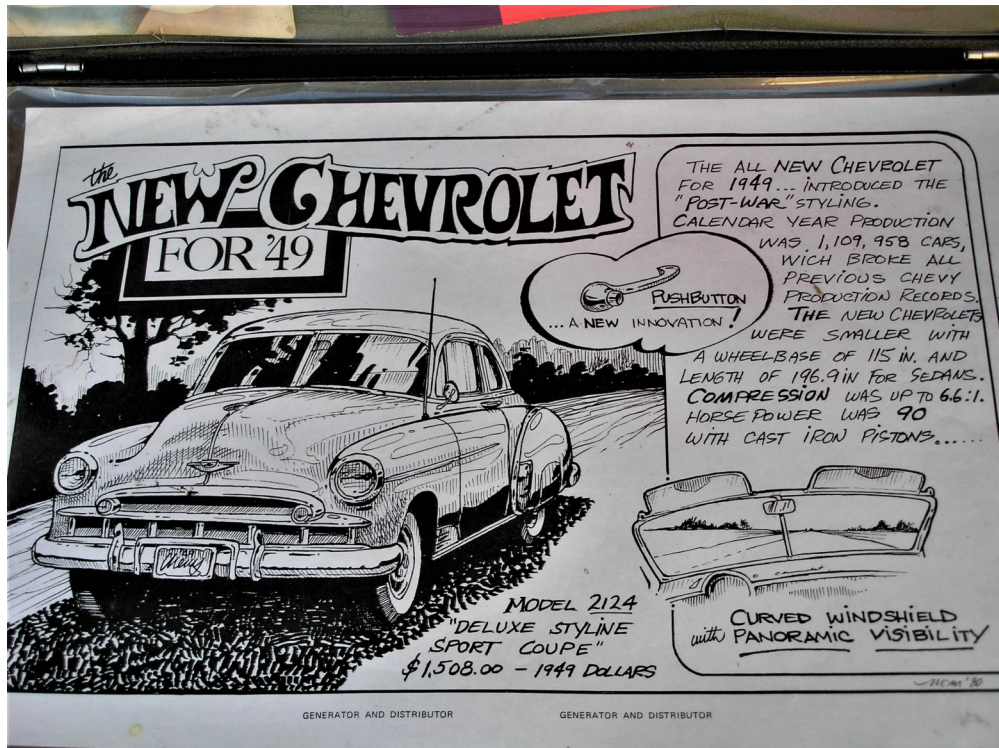 the
NEW CHEVROLET
FOR '49
THE ALL NEW CHEVROLET
FOR 1949... INTRODUCED THE
"POST-WAR" STYLING.
CALENDAR YEAR PRODUCTION
WAS 1,109,958 CARS,
WICH BROKE ALL
PREVIOUS CHEVY
PRODUCTION RECORDS.
THE NEW CHEVROLETS
WERE SMALLER WITH
A WHEELBASE OF 115 IN. AND
LENGTH OF 196.9 IN FOR SEDANS.
COMPRESSION WAS UP TO 6.6:1.
HORSEPOWER WAS 90
WITH CAST IRON PISTONS......
PUSHBUTTON
...A NEW INNOVATION!
Chevy
MODEL 2124
"DELUXE STYLINE
SPORT COUPE"
$1,508.00 - 1949 DOLLARS
CURVED WINDSHIELD
with PANORAMIC VISIBILITY
'80
GENERATOR AND DISTRIBUTOR
GENERATOR AND DISTRIBUTOR